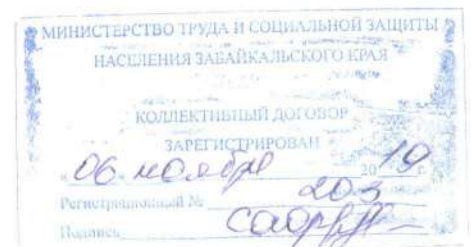 МИНИСТЕРСТВО ТРУДА И СОЦИАЛЬНОЙ ЗАЩИТЫ
НАСЕЛЕНИЯ ЗАБАЙКАЛЬСКОГО КРАЯ
КОЛЛЕКТИВНЫЙ ДОГОВОР
ЗАРЕГИСТРИРОВАН
« 06 » ноября 2019 г.
Регистрационный № 203
Подпись